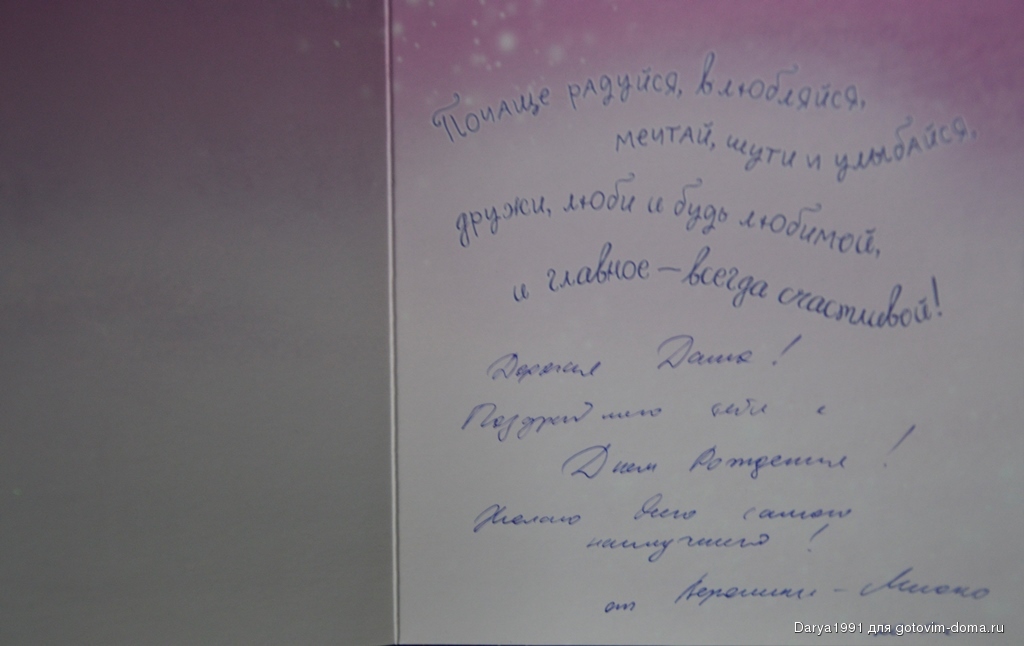 Почаще радуйся, влюбляйся,
мечтай, шути и улыбайся,
дружи, люби и будь любимой,
и главное — всегда счастливой!
Дорогая Даша!
Поздравляю тебя с
Днем Рождения!
Желаю всего самого
наилучшего!
от Вероники - Милоко
Darya1991 для gotovim-doma.ru